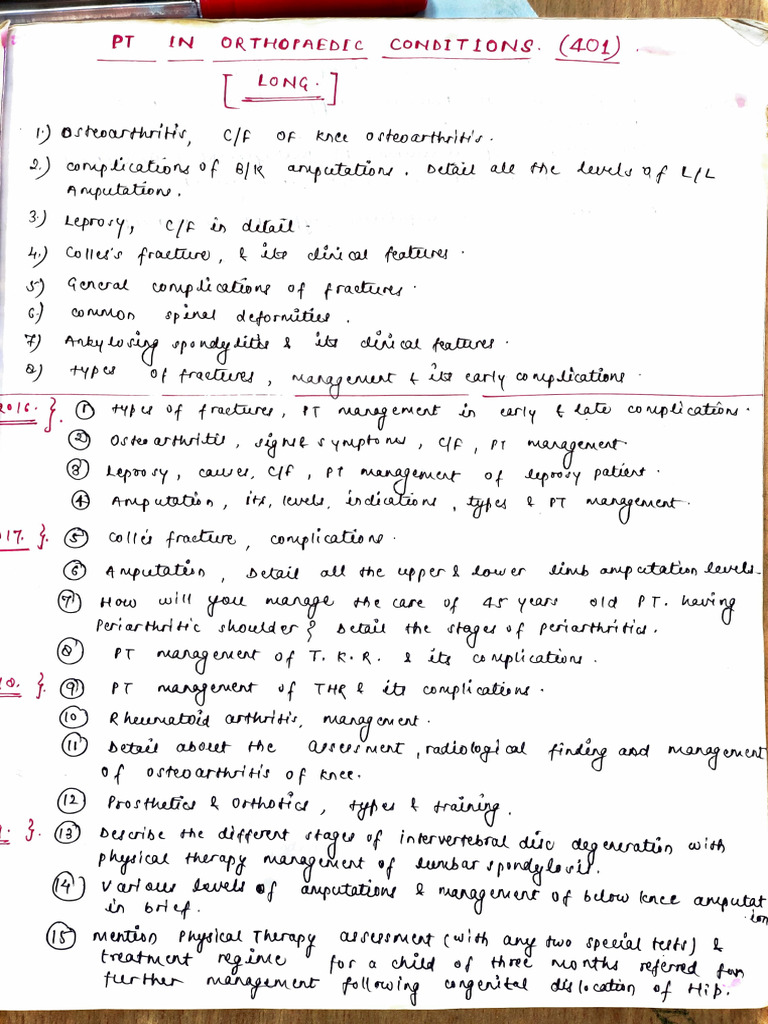 PT IN ORTHOPAEDIC CONDITIONS. (401).
[LONG.]
1.) Osteoarthritis, C/F of knee osteoarthritis.
2.) Complications of B/K amputations. Detail all the levels of L/L
Amputation.
3.) Leprosy, C/F in detail.
4.) Colles's fracture, & its clinical features.
5) General complications of fractures.
6.) Common spinal deformities.
7) Ankylosing spondylitis & its clinical features.
8) Types of fractures, management & its early complications.
2016. }. ① Types of fractures, PT management in early & late complications.
② Osteoarthritis, signs & symptoms, C/F, PT management.
③ Leprosy, causes, C/F, PT management of leprosy patient.
④ Amputation, its, levels, indications, types & PT management.
017. }. ⑤ Colle's fracture, complications.
⑥ Amputation, Detail all the upper & lower limb amputation levels.
⑦ How will you manage the care of 45 years old PT. having
Periarthritic shoulder & Detail the stages of periarthritics.
⑧ PT management of T.K.R. & its complications.
}. ⑨ PT management of THR & its complications.
⑩ Rheumatoid arthritis, management.
⑪ Detail about the assessment, radiological finding and management
of osteoarthritis of knee.
⑫ Prosthetics & Orthotics, types & training.
}. ⑬ Describe the different stages of intervertebral disc degeneration with
physical therapy management of lumbar spondylosis.
⑭ Various levels of amputations & management of below knee amputat
ion
in brief.
⑮ Mention Physical Therapy assessment (with any two special tests) &
treatment regime for a child of three months referred for
further management following congenital dislocation of Hip.